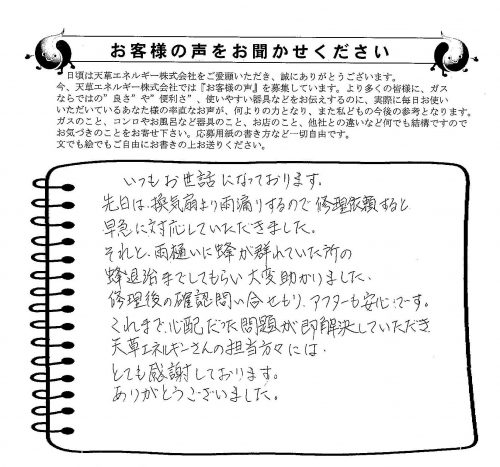 お客様の声をお聞かせください
日頃は天草エネルギー株式会社をご愛顧いただき、誠にありがとうございます。
今、天草エネルギー株式会社では『お客様の声』を募集しています。より多くの皆様に、ガス
ならではの”良さ”や”便利さ”、使いやすい器具などをお伝えするのに、実際に毎日お使い
いただいているあなた様の率直なお声が、何よりの力となり、また私どもの今後の参考となります。
ガスのこと、コンロやお風呂など器具のこと、お店のこと、他社との違いなど何でも結構ですので
お気づきのことをお寄せ下さい。応募用紙の書き方など一切自由です。
文でも絵でもご自由にお書きの上お送りください。
いつもお世話になっております。
先日は、換気扇より雨漏りするので修理依頼すると
早急に対応していただきました。
それと、雨樋いに蜂が群れていた所の
蜂退治までしてもらい大変助かりました。
修理後の確認問い合せもり、アフターも安心です。
これまで心配だった問題が即解決していただき
天草エネルギーさんの担当方々には、
とても感謝しております。
ありがとうございました。